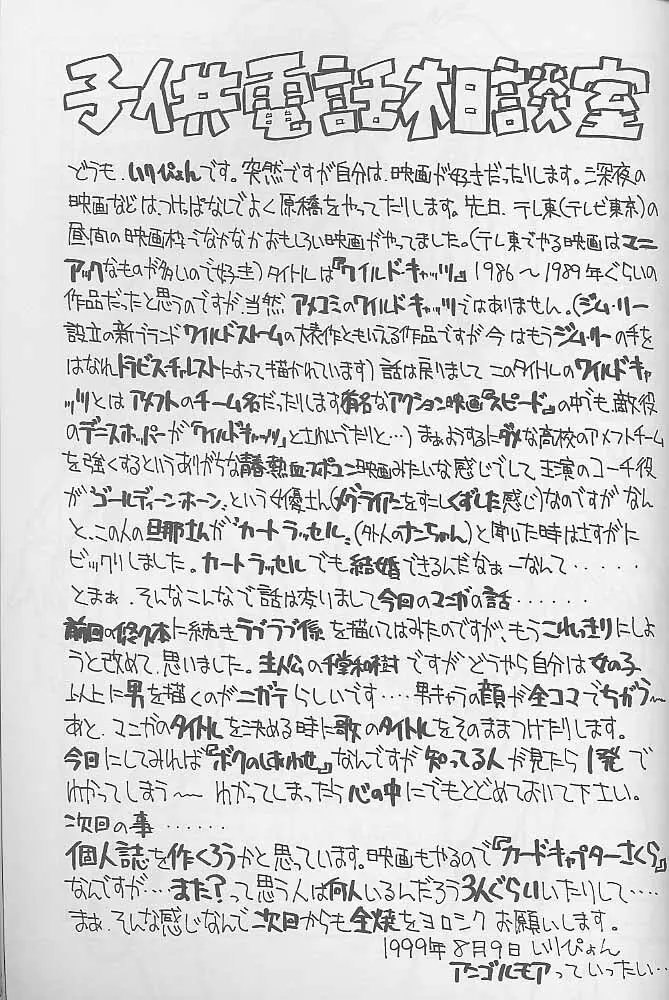 子供電話相談室
どうも、いりぴょんです。突然ですが自分は、映画が好きだったりします。深夜の
映画などは、つけっぱなしでよく原稿をやってたりします。先日、テレ東(テレビ東京)の
昼間の映画枠でなかなかおもしろい映画がやってました。(テレ東でやる映画はマニ
アックなものが多いので好き)タイトルは『ワイルド・キャッツ』1986〜1989年ぐらいの
作品だったと思うのですが、当然アメコミのワイルドキャッツではありません。(ジム・リー
設立の新ブランドワイルドストームの代表作ともいえる作品ですが今はもうジム・リーの手を
はなれトラビス・チャレストによって描かれています)話は戻りまして このタイトルのワイルドキャ
ッツとはアメフトのチーム名だったりします有名なアクション映画『スピード』の中でも、敵役
のデニスホッパーが『ワイルドキャッツ』と されてたりと…)まぁようするにダメな高校のアメフトチーム
を強くするというありがちな青春・熱血・スポコン映画みたいな感じでして、主演のコーチ役
が"ゴールディーン・ホーン"という女優さん(メグ・ライアンをすこしくずした感じ)なのですが なん
と、この人の旦那さんが"カートラッセル"(外人のナンちゃん)と聞いた時はさすがに
ビックリしました。カートラッセルでも結婚できるんだなぁーなんて・・・・・
とまぁ、そんなこんなで話は変りまして今回のマンガの話・・・・・・・
前回の悠久本に続きラブラブ係を描いてはみたのですが、もうこれっきりにしよ
うと改めて、思いました。主人公の千堂和樹ですが どうやら自分は女の子
以上に男を描くのがニガテらしいです・・・・男キャラの顔が全コマでちがう〜
あと、マンガのタイトルを決める時に歌のタイトルをそのままつけたりします。
今回にしてみれば『ボクのしあわせ』なんですが知ってる人が見たら1発で
わかってしまう〜 わかってしまったら心の中にでもとどめておいて下さい。
次回の事・・・・・・
個人誌を作くろうかと思っています。映画もやるので『カードキャプターさくら』
なんですが…また？って思う人は何人いるんだろう3人ぐらいいたりして・・・・
まぁ、そんな感じなんで次回からも全焼をヨロシクお願いします。
1999年8月9日 いりぴょん
アンゴルモアっていったい…